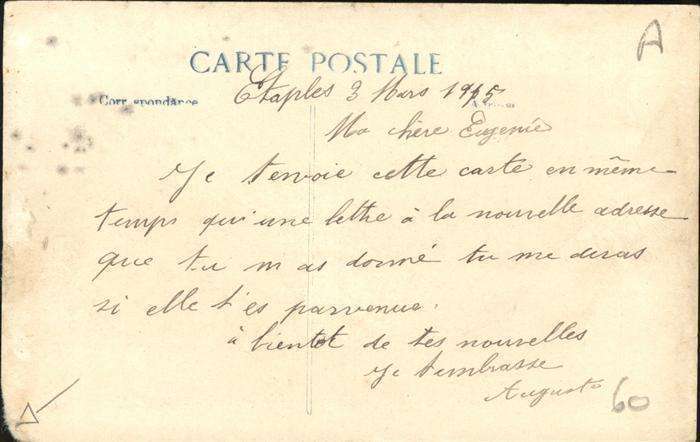 A
CARTE POSTALE
Correspondance
Etaples 3 Mars 1915
Ma chère Eugenie
Je t'envoie cette carte en même
temps qu'une lettre à la nouvelle adresse
que tu m as donné tu me diras
si elle t'es parvenue.
à bientot de tes nouvelles
Je t'embrasse
Auguste
60